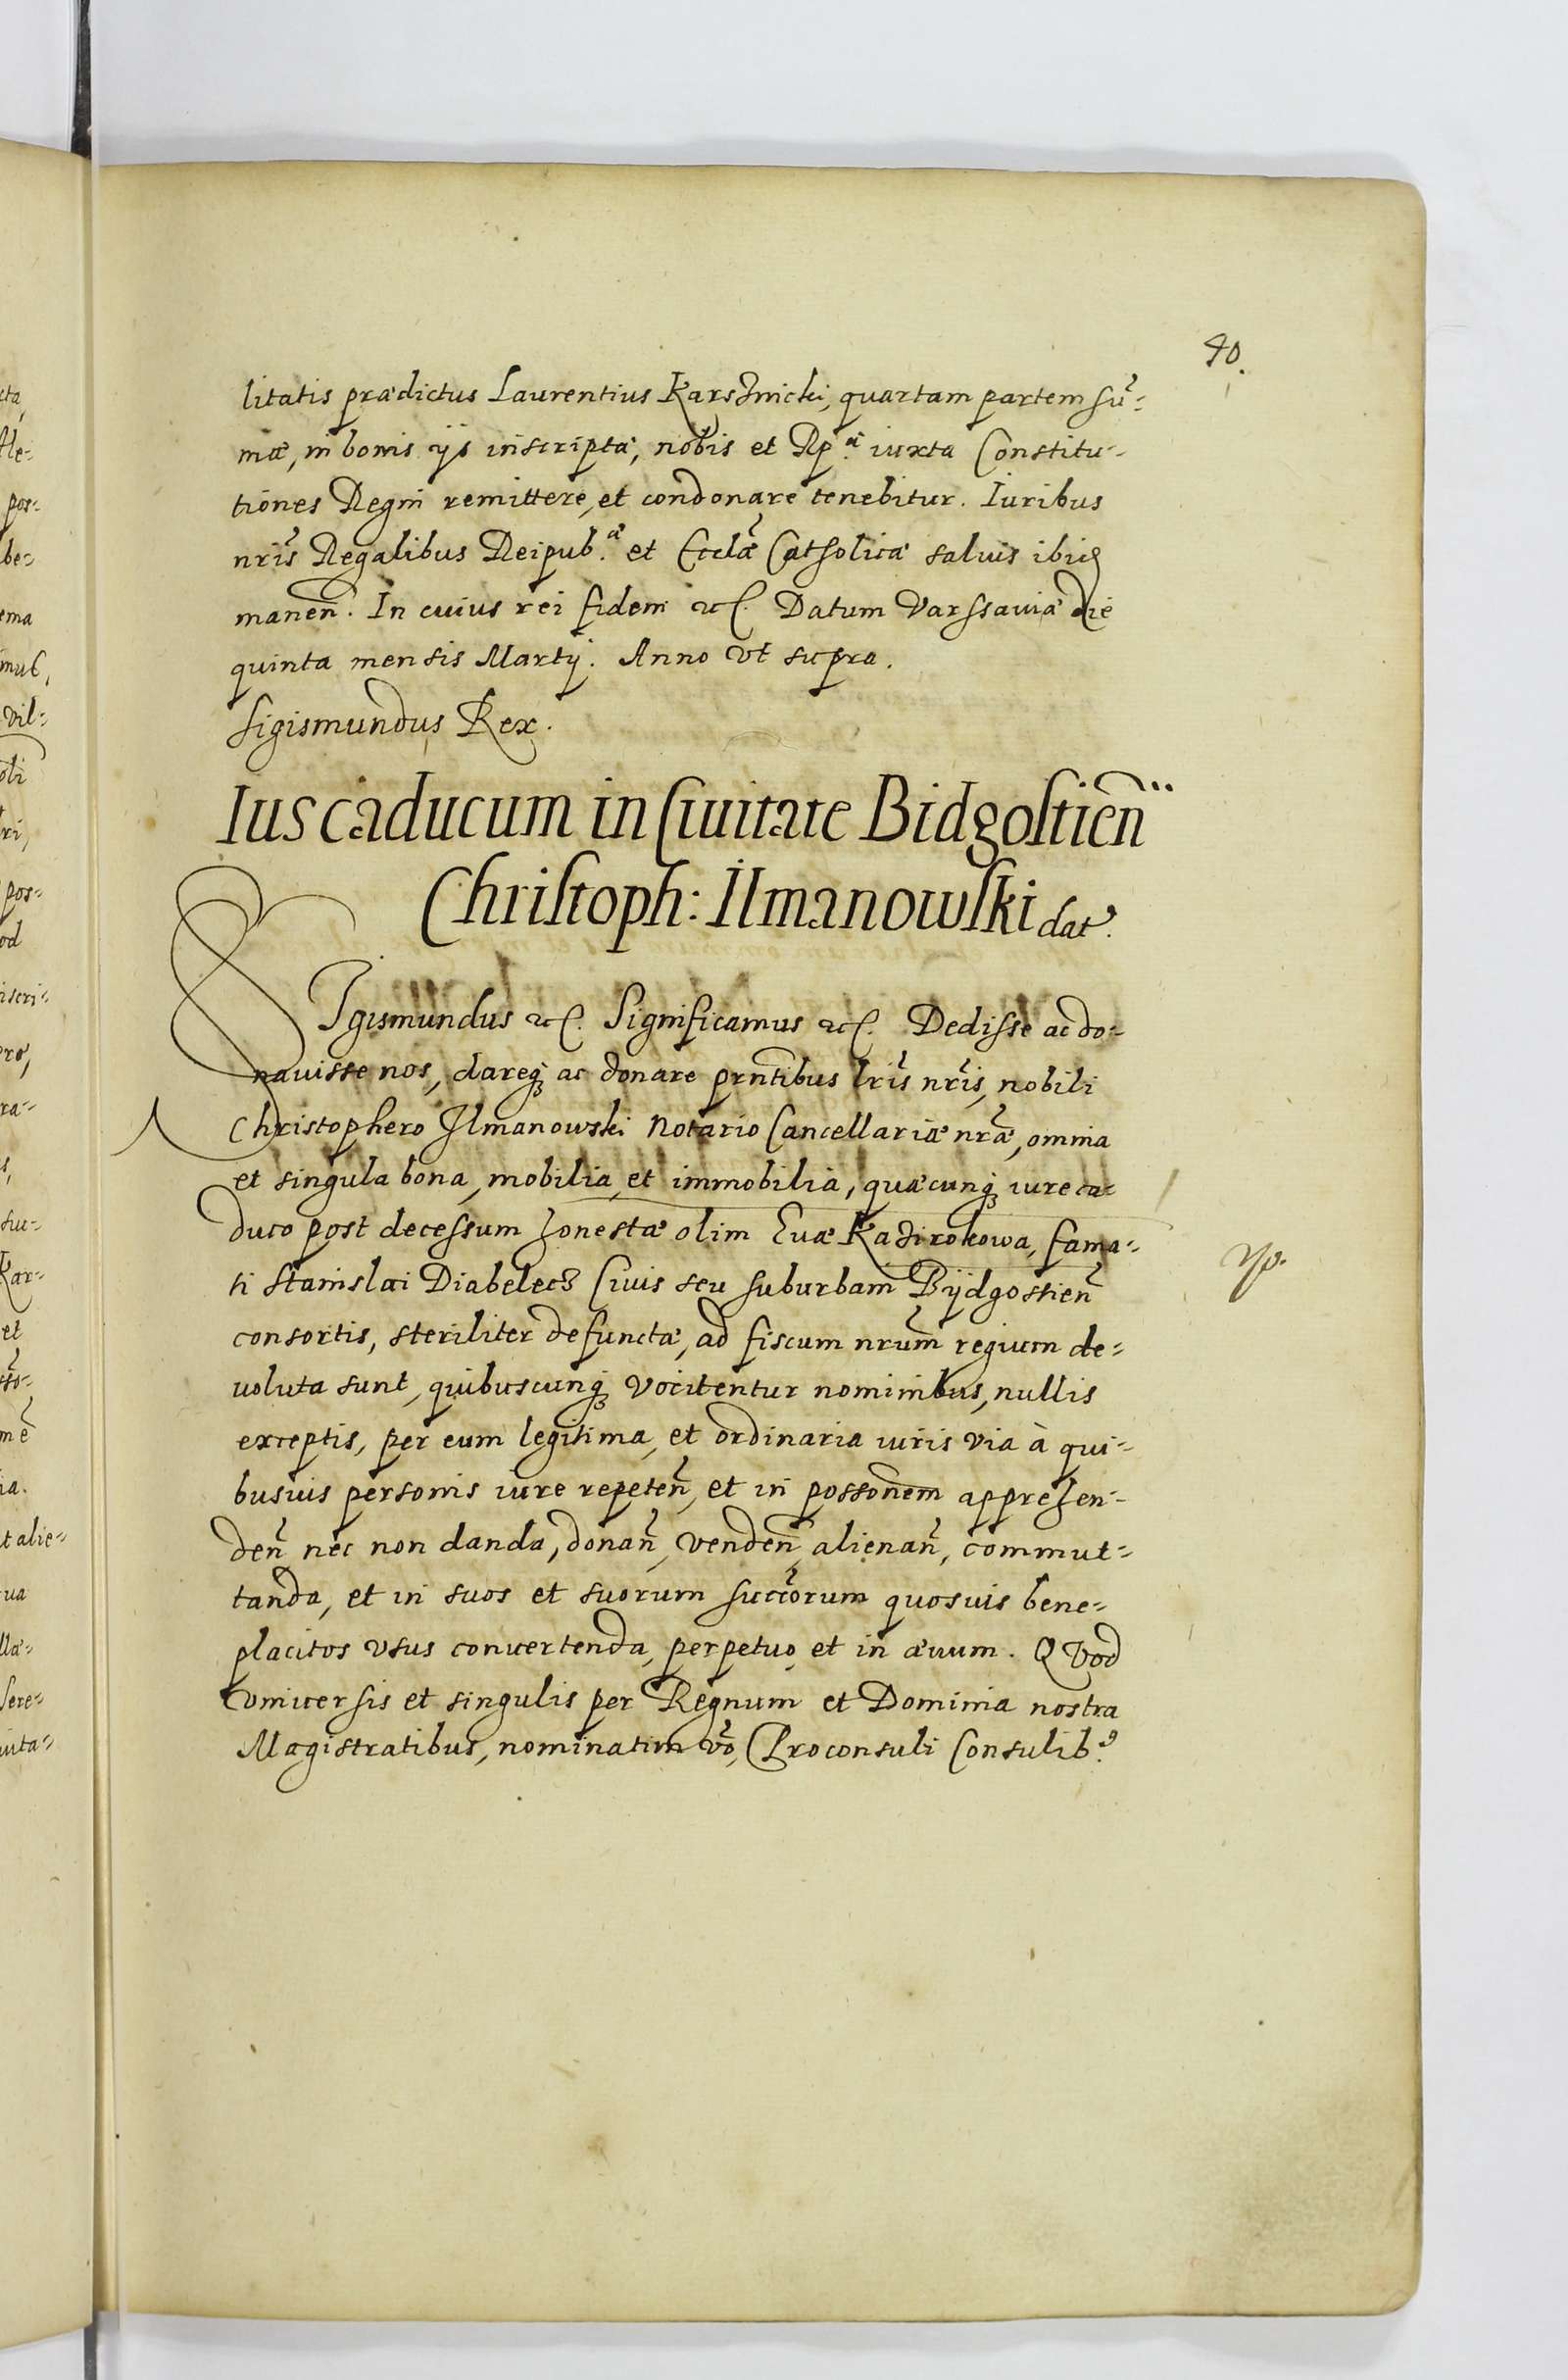 40.
litatis prædictus Laurentius Karsznicki, quartam partem sũ-
mæ, in bonis ijs inscriptæ, nobis et Rp.æ iuxta Constitu-
tiones Regni remittere, et condonare tenebitur. Iuribus
nris̃ Regalibus Reipub.æ et Ecclæ̃ Catholicæ saluis ibid.
maneñ. In cuius rei fidem etc. Datum Varssauiæ die
quinta mensis Martij. Anno vt supra.
Sigismundus Rex.
Ius caducum in Ciuitate Bidgostieñ
Christoph: Ilmanowski dat.
SIgismundus etc. Significamus etc. Dedisse ac do-
nauisse nos, dareq; ac donare prñtibus lris̃ nris̃, nobili
Christophero Ilmanowski Notario Cancellariæ nræ̃, omnia
et singula bona, mobilia, et immobilia, quæcunq; iure ca-
duco post decessum honestæ olim Euæ Kazirokowa, fama-
ti Stanislai Diabelecz Ciuis seu suburbani Bijdgostieñ
consortis, steriliter defunctæ, ad fiscum nrũm regium de-
uoluta sunt, quibuscunq; vocitentur nominibus, nullis
exceptis, per eum legitima, et ordinaria iuris via à qui-
busuis personis iure repeteñ, et in possoñem apprehen-
deñ nec non danda, donañ, vendeñ, alienañ, commut-
tanda, et in suos et suorum succõrum quosuis bene-
placitos vsus conuertenda, perpetuo et in æuum. Quod
vniuersis et singulis per Regnum et Dominia nostra
Magistratibus, nominatim võ, Proconsuli Consulib.9